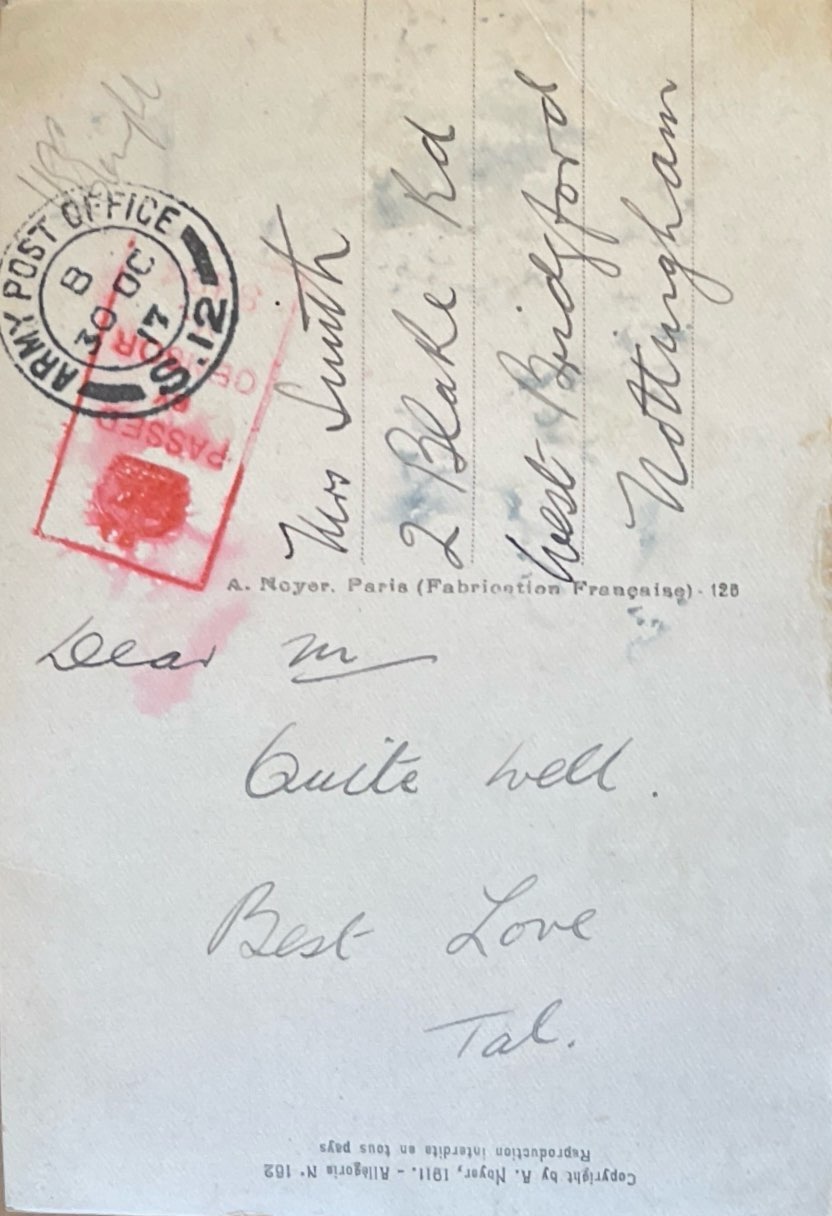 ARMY POST OFFICE S.12
B
30 OC
17
PASSED
CENSOR
Mrs Smith
2 Blake Rd
West Bridgford
Nottingham
A. Noyer. Paris (Fabrication Française) - 126
Dear M
Quite well.
Best Love
Tal.
Copyright by A. Noyer, 1911. - Allégorie N° 162
Reproduction interdite en tous pays